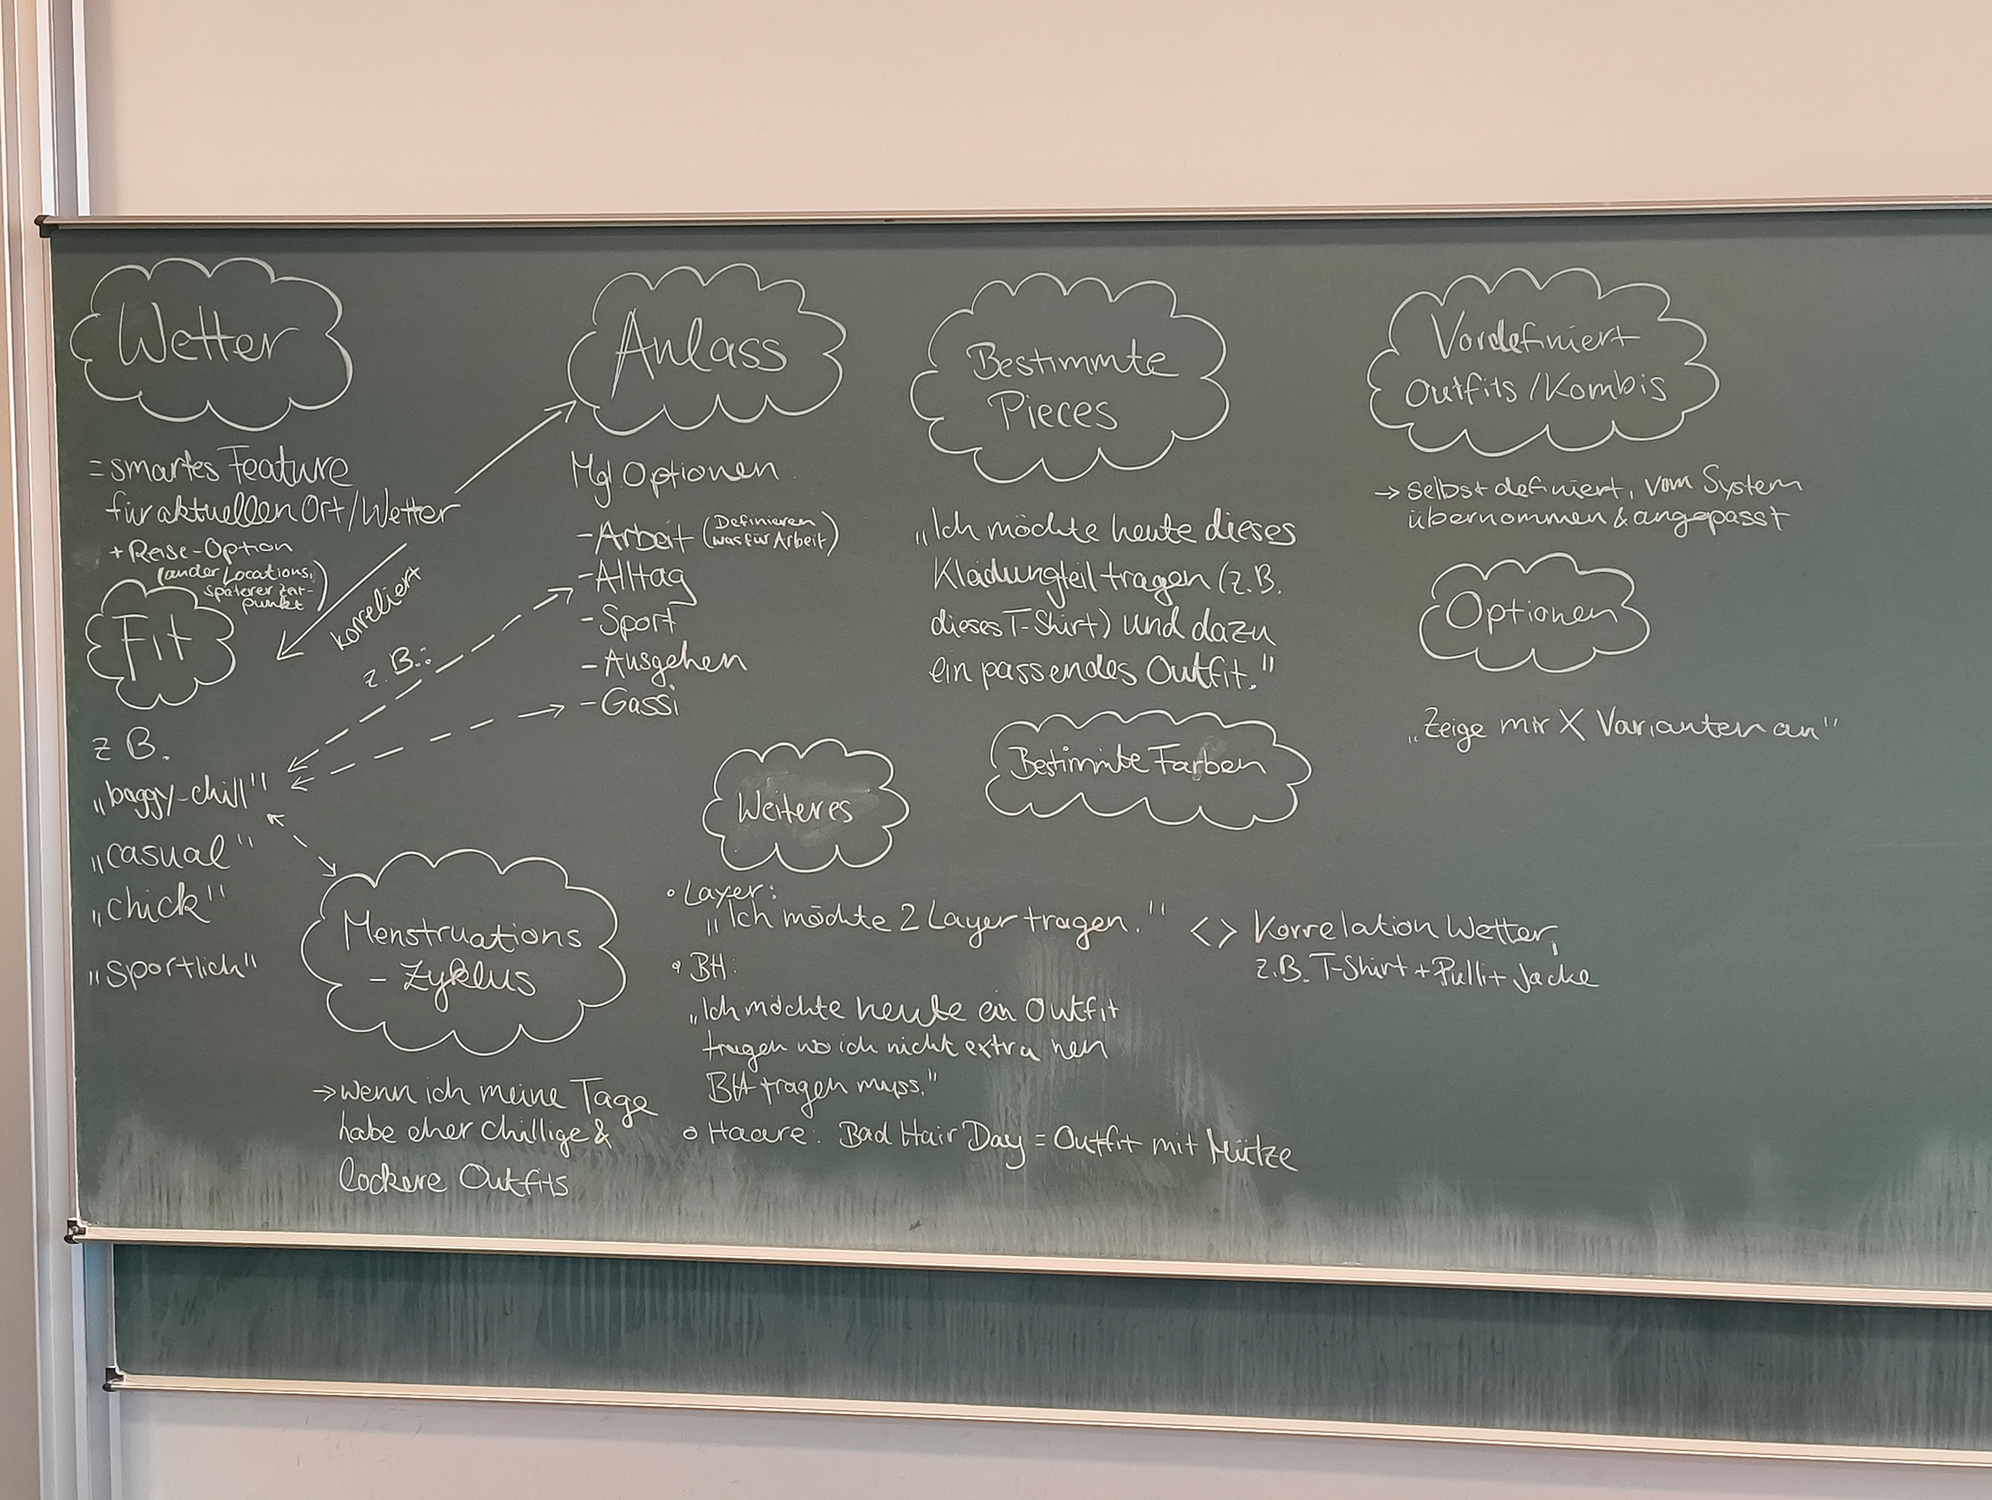 Wetter
= smartes Feature
für aktuellen Ort/Wetter
+ Reise-Option
(ander Locations,
späterer Zeit-
punkt)
korreliert
Fit
z B.
„baggy-chill"
„casual"
„chick"
„sportlich"
z. B.:
Menstruations
- Zyklus
→ wenn ich meine Tage
habe eher chillige &
lockere Outfits
Anlass
Mgl. Optionen
- Arbeit (Definieren
was für Arbeit)
- Alltag
- Sport
- Ausgehen
- Gassi
Bestimmte
Pieces
„Ich möchte heute dieses
Kleidungteil tragen (z.B.
dieses T-Shirt) und dazu
ein passendes Outfit."
Bestimmte Farben
Vordefiniert
Outfits/Kombis
→ selbst definiert, vom System
übernommen & angepasst
Optionen
„Zeige mir X Varianten an"
Weiteres
• Layer:
„Ich möchte 2 Layer tragen." <> Korrelation Wetter,
z.B. T-Shirt + Pulli + Jacke
• BH:
„Ich möchte heute ein Outfit
tragen wo ich nicht extra nen
BH tragen muss."
• Haare: Bad Hair Day = Outfit mit Mütze